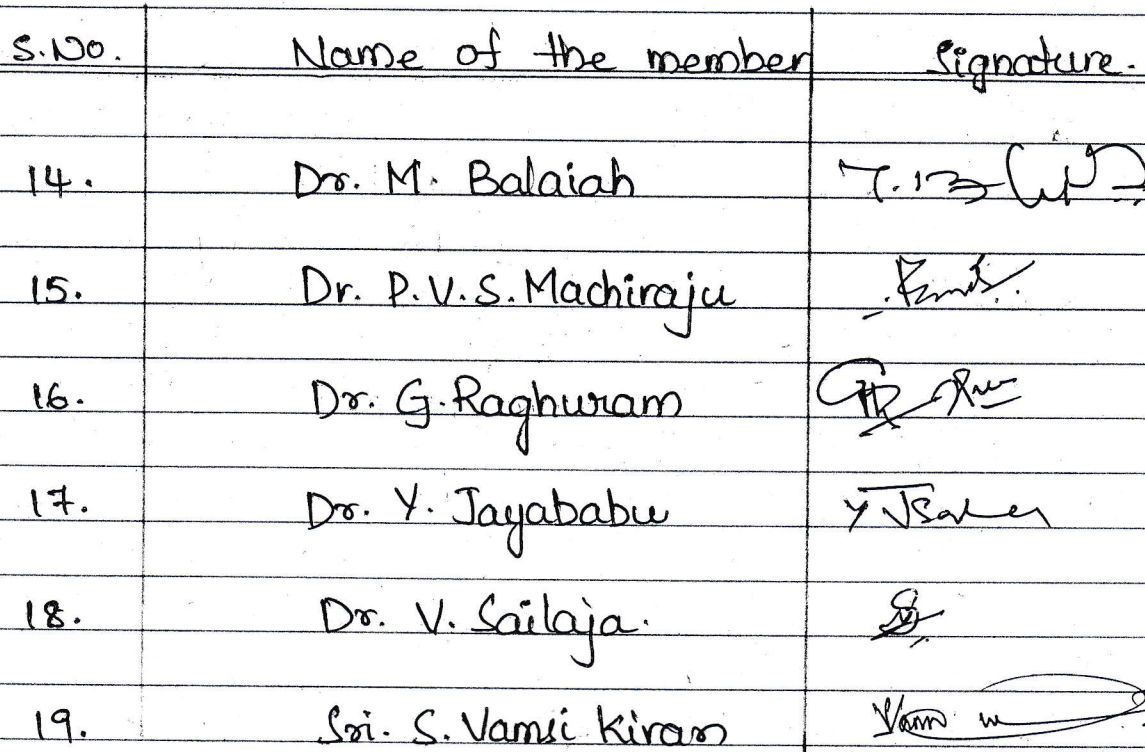 S.No. Name of the member Signature.
14. Dr. M. Balaiah
15. Dr. P.V.S. Machiraju
16. Dr. G. Raghuram
17. Dr. Y. Jayababu
18. Dr. V. Sailaja.
19. Sri. S. Vamsi Kiran